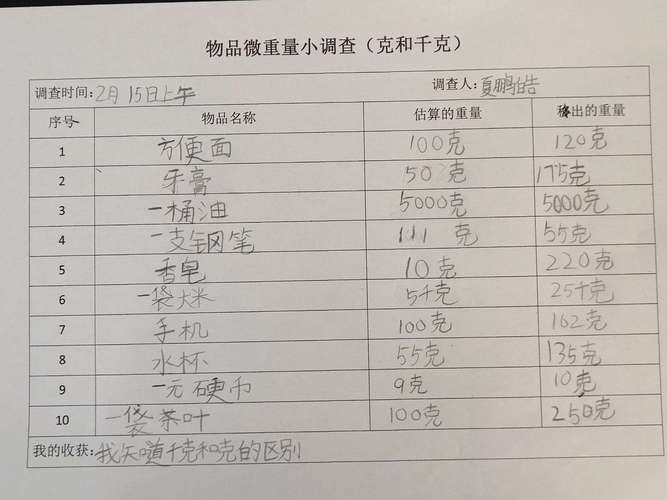 物品微重量小调查（克和千克）
调查时间: 2月 15日上午 调查人: 夏鹏皓
序号 物品名称 估算的重量 称出的重量
1 方便面 100克 120克
2 牙膏 50克 175克
3 一桶油 5000克 5000克
4 一支钢笔 111 克 55克
5 香皂 10克 220克
6 一袋大米 5千克 25千克
7 手机 100克 162克
8 水杯 55克 135克
9 一元硬币 9克 10克
10 一袋茶叶 100克 250克
我的收获: 我知道千克和克的区别